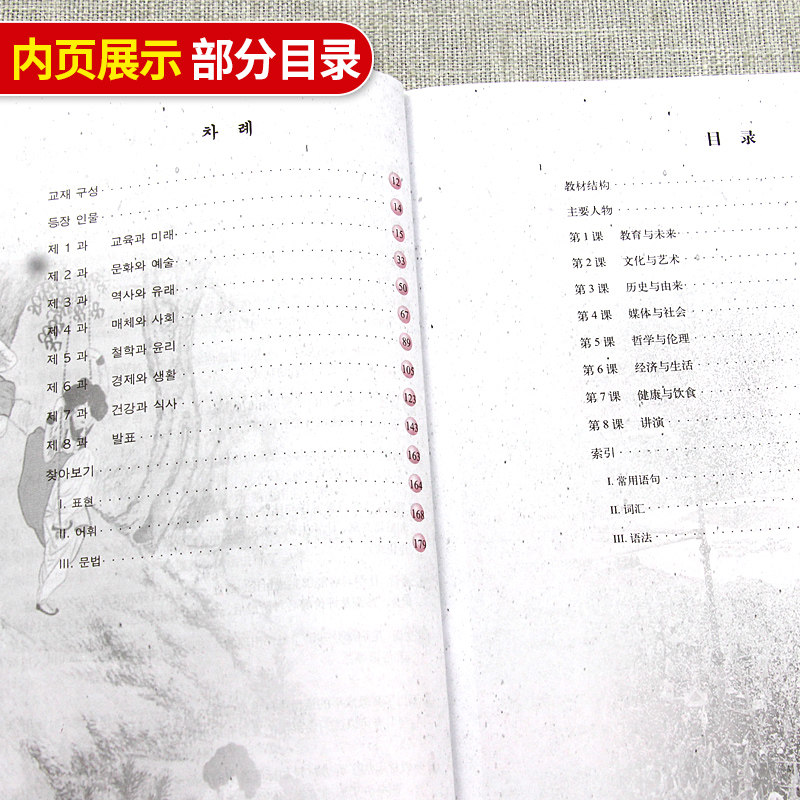 内页展示 部分目录
차 례
교재 구성 12
등장 인물 14
제 1 과 교육과 미래 15
제 2 과 문화와 예술 33
제 3 과 역사와 유래 50
제 4 과 매체와 사회 67
제 5 과 철학과 윤리 89
제 6 과 경제와 생활 105
제 7 과 건강과 식사 123
제 8 과 발표 143
찾아보기 163
I. 표현 164
II. 어휘 168
III. 문법 179
目 录
教材结构
主要人物
第 1 课 教育与未来
第 2 课 文化与艺术
第 3 课 历史与由来
第 4 课 媒体与社会
第 5 课 哲学与伦理
第 6 课 经济与生活
第 7 课 健康与饮食
第 8 课 讲演
索引
I. 常用语句
II. 词汇
III. 语法